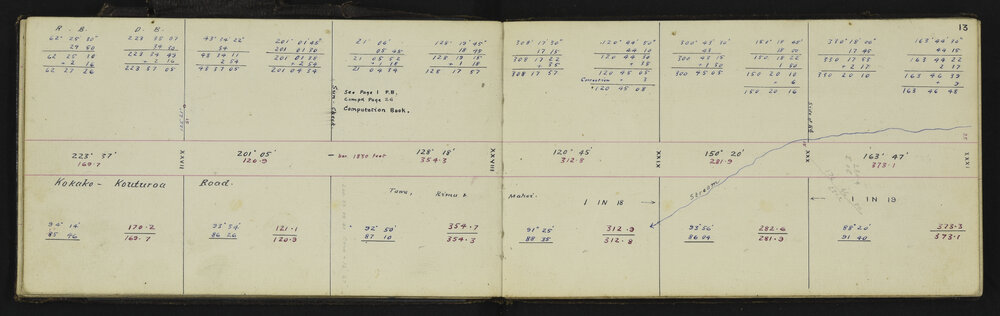 13
R. B. D. B.
62° 25' 30" 223 35 07
29 50 34 50
62 25 38 223 34 49
+ 2 16 + 2 16
62 27 26 223 37 05
43° 14' 22" 201° 01' 45"
34 201 01 30
43 34 11 201 01 38
2 54 + 2 54
43 37 05 201 04 34
Sun. Check
21° 06' 128° 19' 45"
05 45 18 45
21 05 52 128 19 15
- 1 18 - 1 18
21 04 34 128 17 57
See Page 1 P.B.
Compt Page 26
Computation Book.
308° 17' 30" 120° 44' 50"
17 15 44 10
308 17 22 120 44 30
+ 35 + 35
308 17 57 120 45 05
Correction + 3
120 45 08
300° 43' 30" 150° 18' 45"
43 18 00
300 43 15 150 18 22
+ 1 50 1 50
300 45 05 150 20 10
+ 6
150 20 16
330° 18' 20" 163° 44' 30"
17 45 44 15
330 17 55 163 44 22
+ 2 17 2 17
330 20 10 163 46 39
+ 9
163 46 48
223° 37'
169.7
XXVII
201° 05'
120.9
bar. 1830 feet
128° 18'
354.3
XXVIII
120° 45'
312.8
XXIX
150° 20'
281.9
XXX
163° 47'
373.1
XXXI
Kokako - Kouturoa Road.
Tawa, Rimu & Mahoe.
1 IN 18 →
Stream
← 1 IN 19
94° 14' 170.2
85 46 169.7
93° 34' 121.1
86 26 120.9
92° 50' 354.7
87 10 354.3
91° 25' 312.9
88 35 312.8
93° 56' 282.6
86 04 281.9
88° 20' 373.3
91 40 373.1